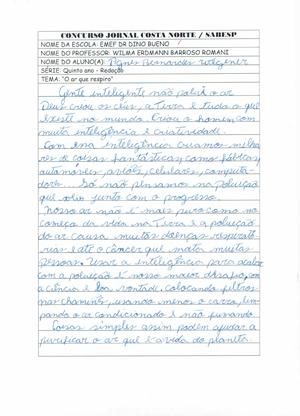 CONCURSO JORNAL COSTA NORTE / SABESP
NOME DA ESCOLA: EMEF DR DINO BUENO
NOME DO PROFESSOR: WILMA ERDMANN BARROSO ROMANI
NOME DO ALUNO(A): Agnes Bernardes
SÉRIE: Quinto ano - Redação
TEMA: "O ar que respiro"
Gente inteligente não polui o ar
Deus criou os céus, a Terra e tudo o que
existe no mundo. Criou o homem com
muita inteligência e criatividade.
Com essa inteligência criamos milha
res de coisas fantásticas como fábricas,
automóveis, aviões, celulares, computa-
dores... Só não pensamos na poluição
que viria junto com o progresso.
Nosso ar não é mais puro como no
começo da vida na Terra e a poluição
do ar causa muitas doenças respirató-
rias e até o câncer que mata muitas
pessoas. Usar a inteligência para acabar
com a poluição é nosso maior desafio, com
a ciência e boa vontade. colocando filtros
nas chaminés, usando menos o carro, lim-
pando o ar condicionado e não fumando.
Coisas simples assim podem ajudar a
purificar o ar que é a vida do planeta